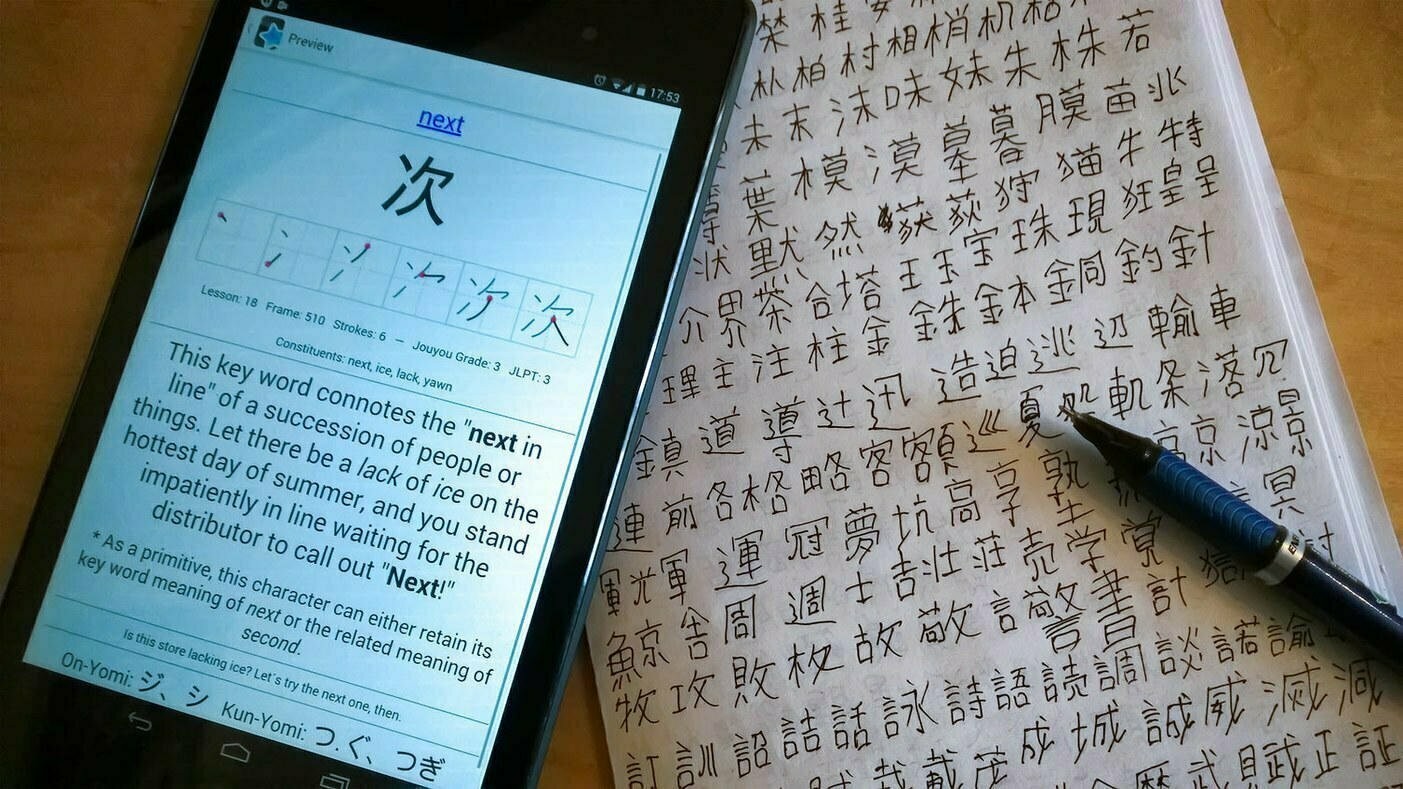 Preview
17:53
next
次
Lesson: 18 Frame: 510 Strokes: 6 – Jouyou Grade: 3 JLPT: 3
Constituents: next, ice, lack, yawn
This key word connotes the "next in
line" of a succession of people or
things. Let there be a lack of ice on the
hottest day of summer, and you stand
impatiently in line waiting for the
distributor to call out "Next!"
* As a primitive, this character can either retain its
key word meaning of next or the related meaning of
second.
Is this store lacking ice? Let's try the next one, then.
On-Yomi: ジ、シ Kun-Yomi: つ.ぐ、つぎ
桂
朴 柏 村 相 梢 机
未 末 沫 味 妹 朱 株 若
葉 模 漠 墓 暮 膜 苗 兆
状 黙 然 荻 狩 猫 牛 特
介 界 茶 合 塔 王 玉 宝 珠 現 狂 皇 呈
理 主 注 柱 金 銑 鉢 銅 釣 針
鎮 道 導 辻 迅 造 迫 逃 辺 輸 車
連 前 各 格 略 客 額 巡 夏 処 軌 条 落 冗
軍 光 運 冠 夢 坑 高 享 塾 京 涼 景
鯨 舎 周 週 士 吉 壮 荘 売 学 覚 冥
牧 攻 敗 枚 故 敬 言 警 書 計
訂 訓 詔 詰 話 詠 詩 語 読 調 談 諾 諭
栽 載 茂 成 城 誠 威 滅 減
歴 武 賦 正 証